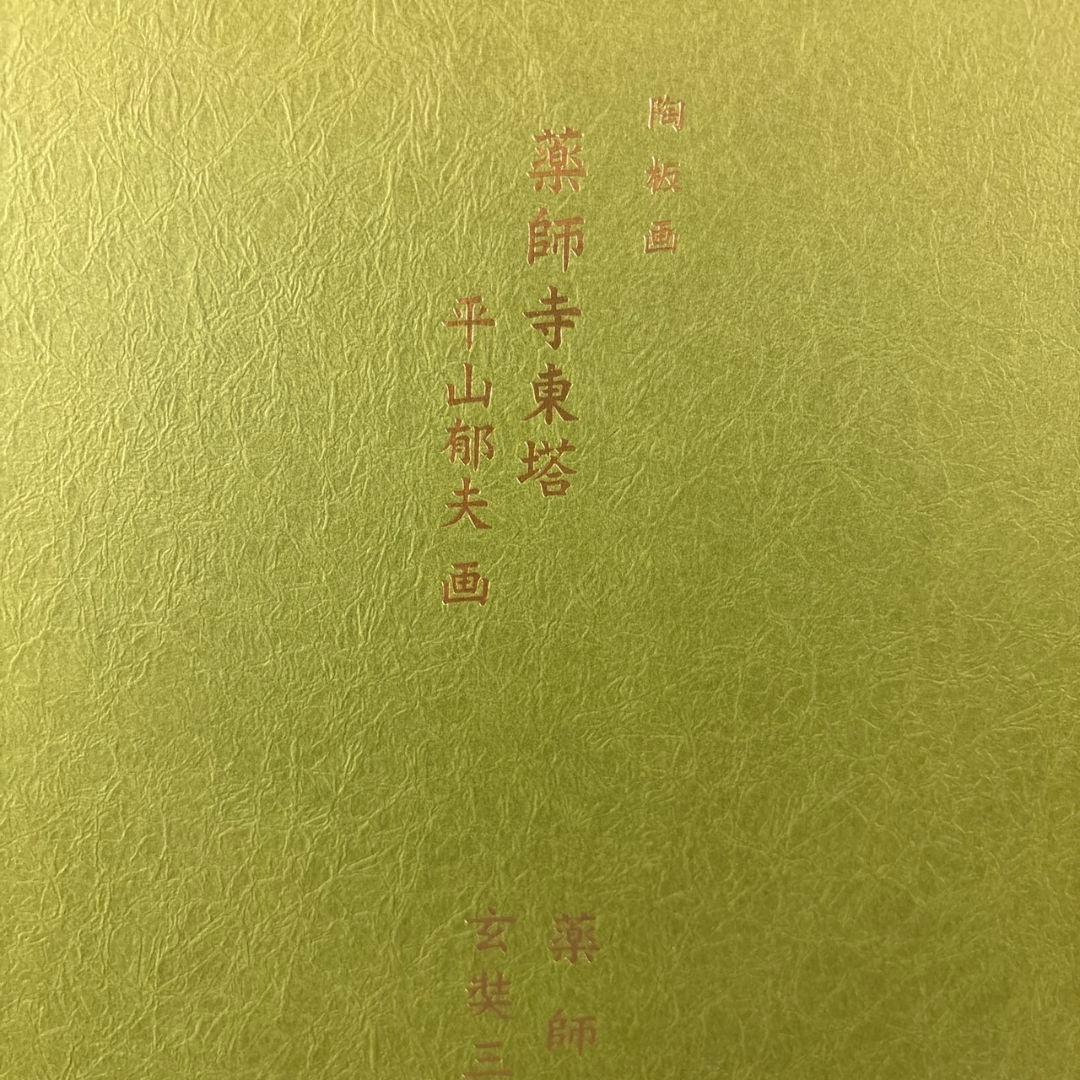 陶板画
薬師寺東塔
平山郁夫 画
薬師
玄奘三